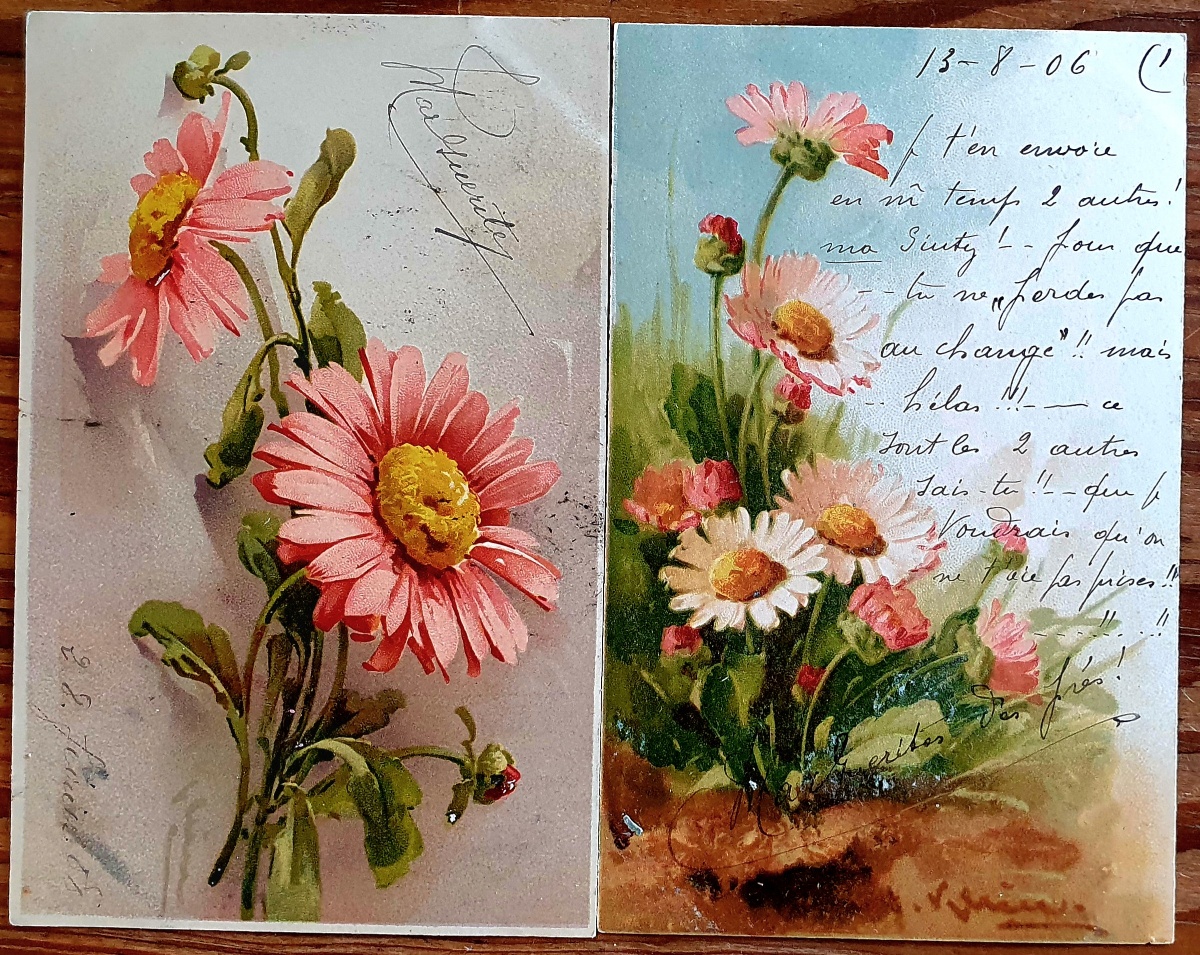 Marguerite
28 février 05
13-8-06 (1
Je t'en envoie
en m̂ temps 2 autres!
ma Sinty!-- pour que
-- tu ne „perdes pas
au change"!! mais
-- hélas!!!-- ce
sont les 2 autres
sais-tu!!-- que je
voudrais qu'on
ne t'aie pas prises!!
----!!--!!
Marguerites des prés!
C. Klein.